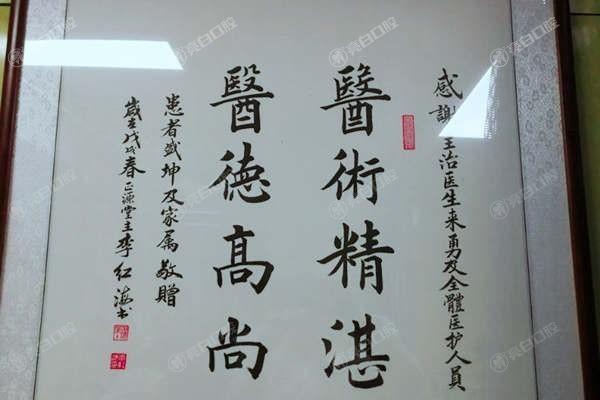 感謝主治医生来勇及全體医护人員
醫術精湛
醫德高尚
患者盛坤及家属敬贈
歲在戊戌春正源堂主李红海书
亮白口腔